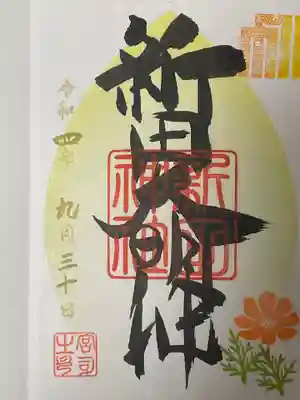 新田大明神
新田
神社
令和四年九月三十日
宮司
之印